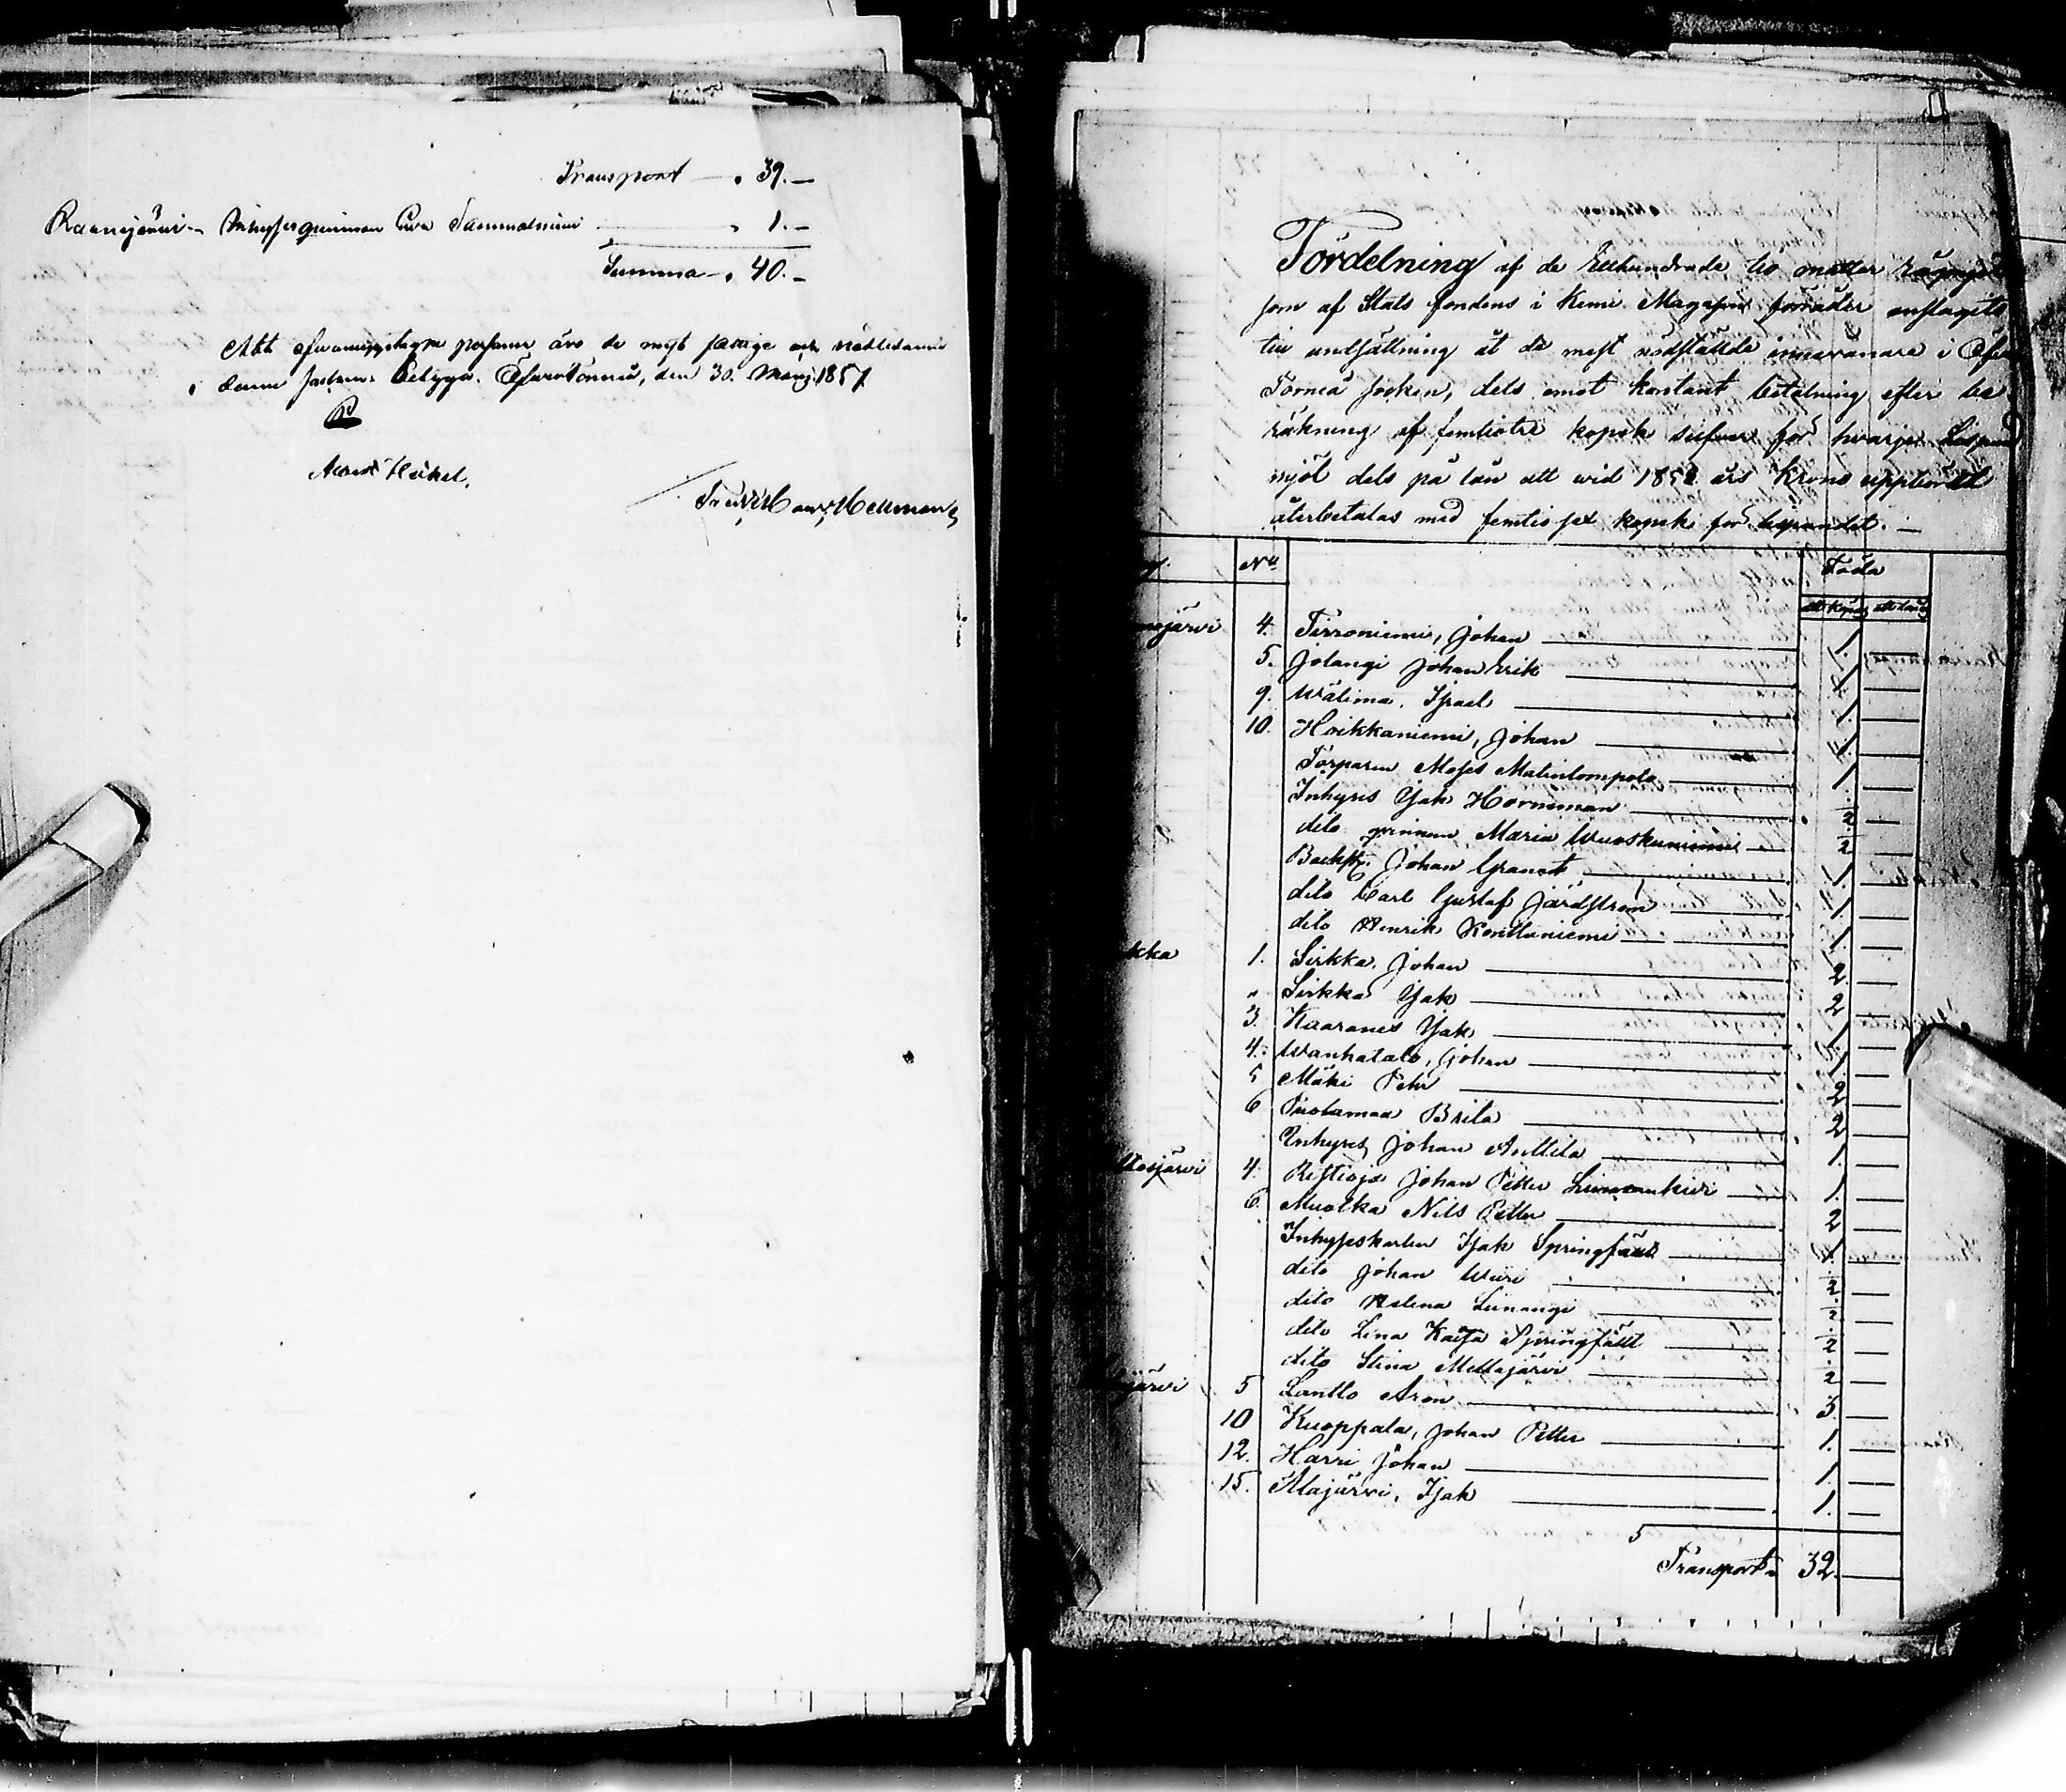 Transport — " 39. —
Raanujärvi - Inhyses qvinnan Eva Tammelmini " 1. —
Summa — " 40. —
Att ofvanuppstagne personer äro de mest fattige och nödlidande
i denne socken, betyga. Öfvertorneå, den 30. Mars 1857
Albert Heikel,
Hellman
Fördelning af de Etthundrade tio mattor rågmjöl
som af Stats fondens i Kemi Magasins förråder anslagits
till undsättning åt de mest nödstälde innevånare i Öfver
Torneå socken, dels emot kontant betalning efter be-
räkning af femtiotre kopek silfver för hvarje Lispund
mjöl dels på lån att vid 1858 års Krono uppbörd
återbetalas med femtio sex kopek för lispundet. —
No Töda
att köpas att låna
järvi 4. Tirroniemi, Johan 1. —
5. Jolangi Johan Erik 1. —
9. Wälima, Isräel 1. —
10. Hoikkaniemi, Johan 1. —
Torparen Moses Matinlompolo 1 —
Inhyses Isak Horniman 2 —
dito qvinnan Maria Wuoskuniemi 2 —
Backst. Johan Granat 1. —
dito Carl Gustaf Järdström 1 —
dito Henrik Konttaniemi 1. —
kka 1. Sirkka, Johan 2. —
" Sirkka Isak 2 —
3. Kaaranes Isak 1. —
4. Wanhatalo, Johan 1. —
5 Mäki Pehr 2 —
6 Puotamaa Brita 2 —
Inhyses Johan Anttila 1. —
ttosjärvi 4. Ristioja Johan Petter Liimankivi 1. —
6. Muotka Nils Petter 2 —
Inhyseskarlen Isak Springfält 1. —
dito Johan Wiiri 2 —
dito Helena Liinangi 2 —
dito Lina Kaisa Springfällt 2 —
dito Stina Mettajärvi 2 —
järvi 5 Lantto Aron 3. —
10 Kuoppala, Johan Petter 1. —
12. Harri Johan 1 —
15. Alajärvi, Isak 1. —
Transport 32. —